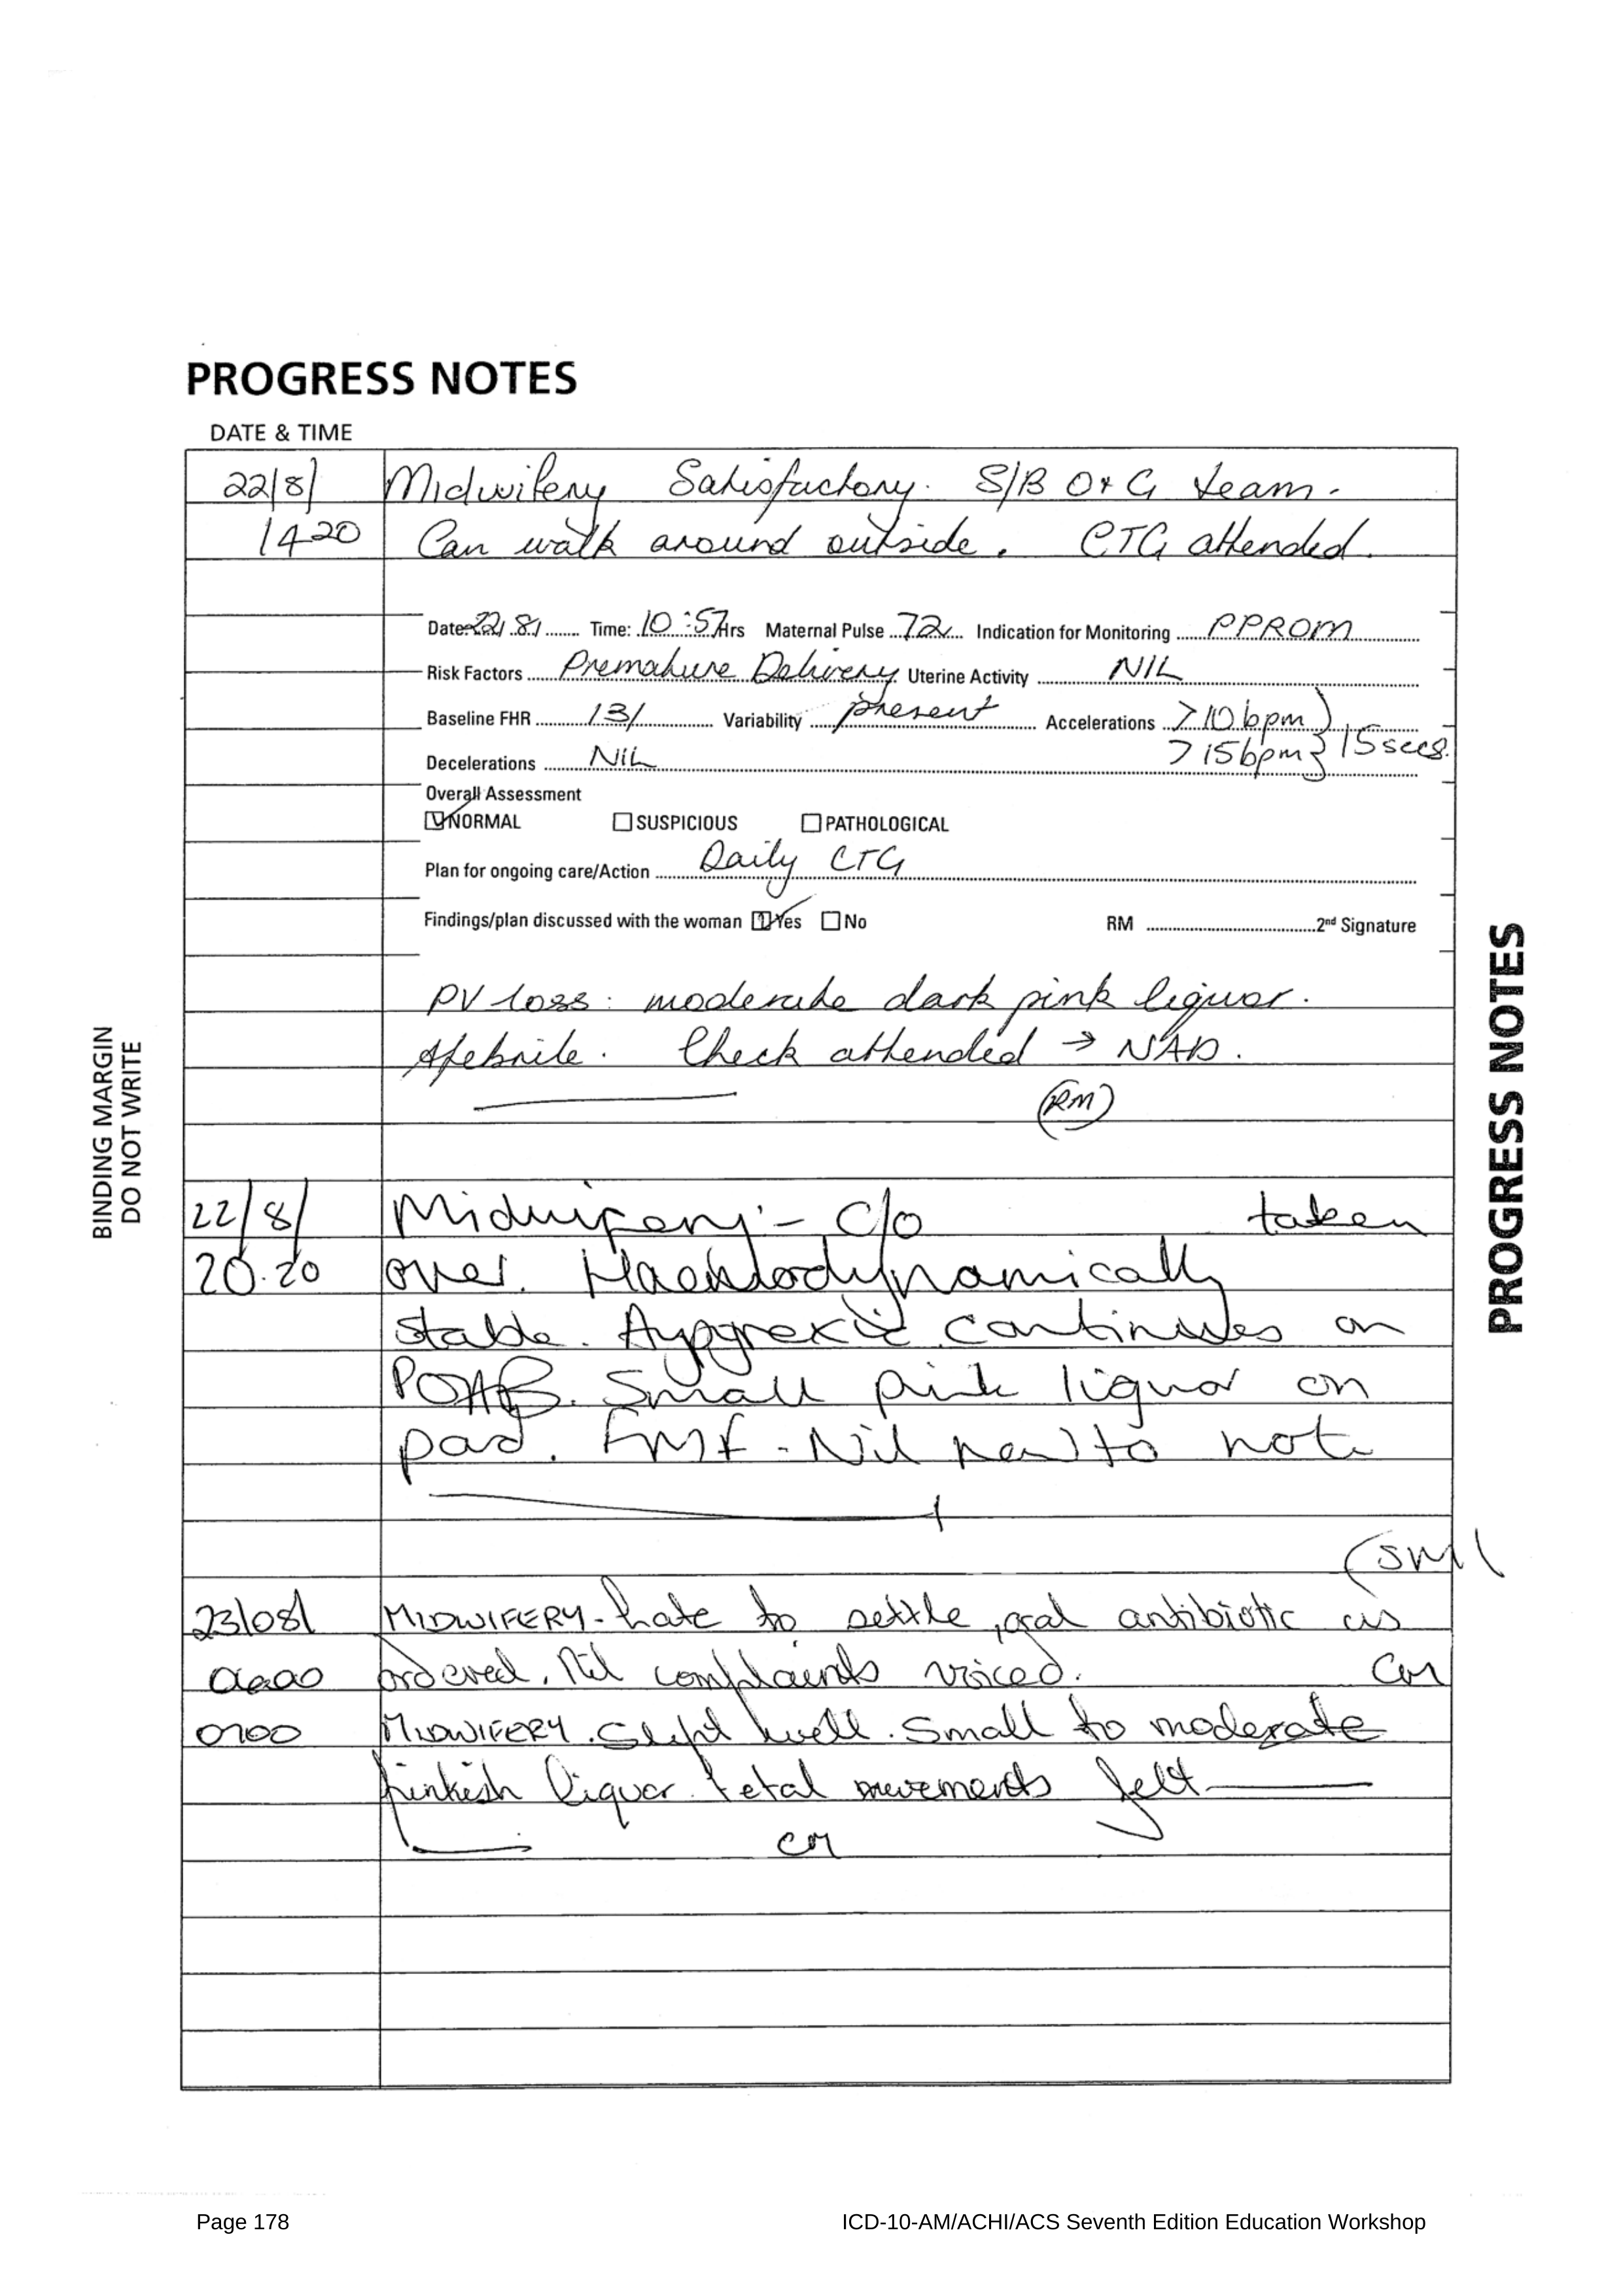 PROGRESS NOTES
DATE & TIME
22/8/ Midwifery Satisfactory. S/B O+G team.
1420 Can walk around outside. CTG attended.
Date: 22/8/ Time: 10:57Hrs Maternal Pulse 72 Indication for Monitoring PPROM
Risk Factors Premature Delivery Uterine Activity NIL
Baseline FHR 131 Variability present Accelerations >10bpm } 15secs.
Decelerations NIL >15bpm }
Overall Assessment
NORMAL SUSPICIOUS PATHOLOGICAL
Plan for ongoing care/Action Daily CTG
Findings/plan discussed with the woman Yes No RM 2nd Signature
PV loss: moderate dark pink liquor.
Afebrile. Check attended → NAD.
(RM)
22/8/ Midwifery:- C/O taken
20.20 over. Haemodynamically
stable. Apyrexic continues on
POAB. Small pink liquor on
pad. FMF - Nil new to note
(SM)
23/08/ MIDWIFERY - Late to settle, oral antibiotic as
ordered. Nil complaints voiced. CM
0700 MIDWIFERY. Slept well. Small to moderate
pinkish liquor. Fetal movements felt
CM
BINDING MARGIN
DO NOT WRITE
PROGRESS NOTES
Page 178 ICD-10-AM/ACHI/ACS Seventh Edition Education Workshop